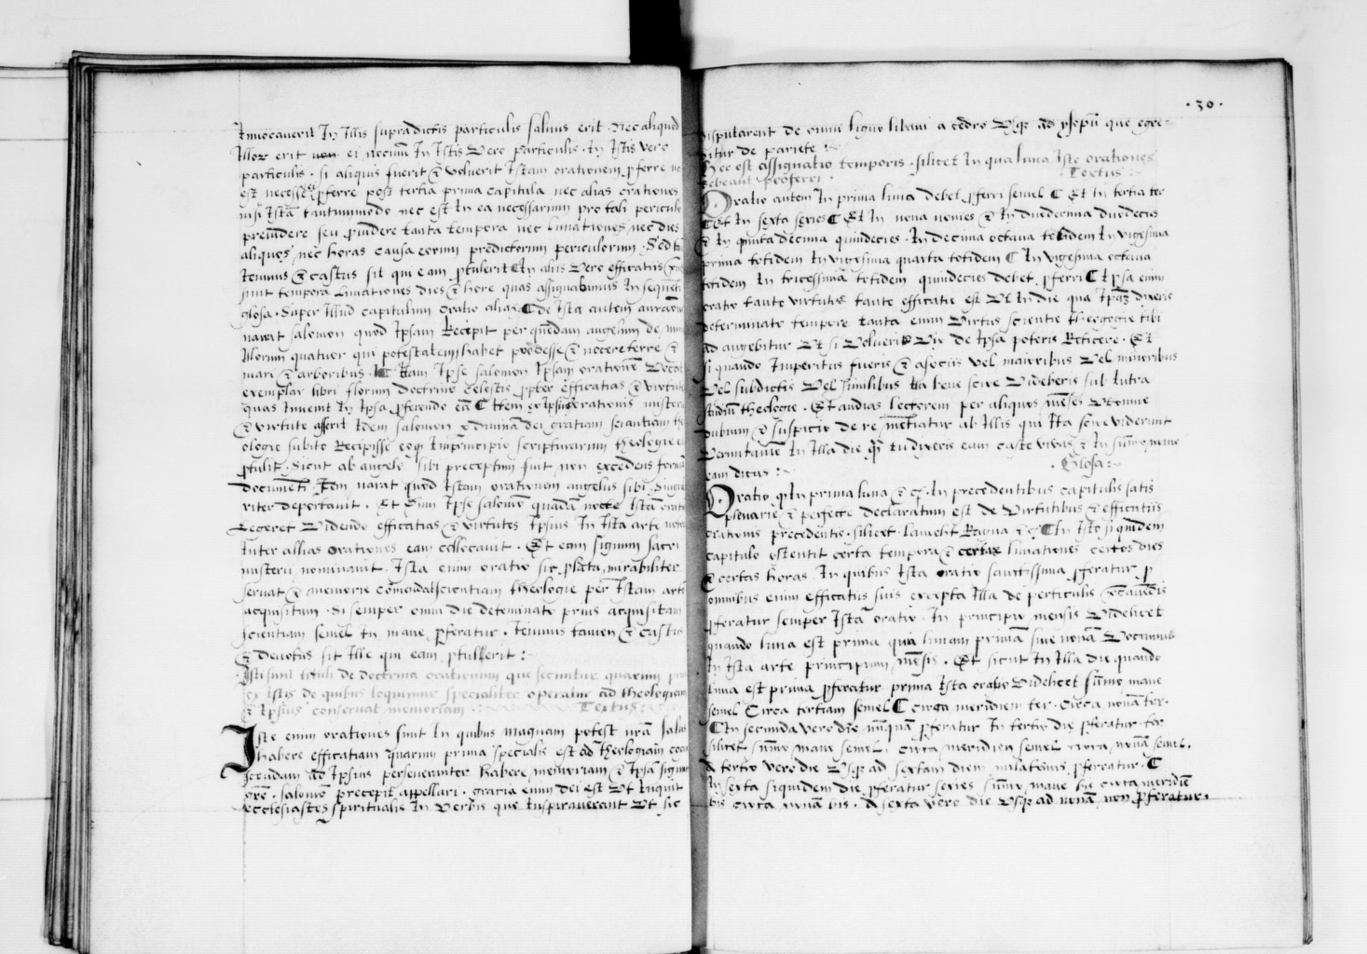 Invocaverit In Illis supradictis particulis salvus erit. nec aliquod
Illor erit non ei nocivum In Istis Vero particulis. In Istis vero
particulis. si aliquis fuerit & voluerit Istam orationem pferre no
est necesse pferre post tertia prima capitula nec alias orationes
nisi Istā tantummodo nec est In ea necessarium pro tali periculo
previdere seu pvidere tanta tempora nec lunationes nec dies
aliquos nec horas causa eorum predictorum periculorum. Sed tā
Ieiunus & castus sit qui eam ptulerit In aliis Vero efficatiis
sunt tempora lunationes dies & hore quas assignabimus In sequēti
glosa. Super Illud capitulum oratio De Ista autem
narat salomon quod Ipsam Recepit per quēdam angelum de
Illorum quatuor qui potestatem habet prodesse & nocere terre &
mari & arboribus. Itam Ipse salomon Ipsam orationē Vocat
exemplar libri florum doctrine celestis ppter efficatias & virtutes
quas Invenit In Ipsa pferendo eā Item ex Ipsius orationis misteri
& virtute asserit Idem salomon & divina dei gratiam scientiam the
ologie subito Recepisse eoq Imprincipio scripturarum theologie
ptulit. Sicut ab angelo sibi preceptum fuit non excedens formā
documenti. Item narat quod Istam orationem angelus sibi
riter deportavit. Et cum Ipse salomō quadā nocte Istā orati
Legeret Videndo efficatias & virtutes Ipsius In Ista arte no
Inter allias orationes eam collocavit. Et eam signum sacri
misterii nominavit. Ista enim oratio sic plata mirabiliter
servat & memorie comendat scientiam theologie per Istam artē
acquisitam. si semper omni die determinate prius acquisitam
scientiam semel In mane pferatur. Ieiunus tamen & castus
& devotus sit Ille qui eam ptulerit:
Isti sunt tituli de doctrina orationum que secuntur quarum
ex Istis de quibus loquimur specialiter operatur ad theologiam
& Ipsius conservat memoriam. Textus
Iste enim orationes sunt In quibus magnam potest nrā salus
habere efficatiam quarum prima specialis est ad theologiam
Secundam ad Ipsius perseveranter habere memoriam & Ipsā signum
grē. salomō precepit appellari. gracia enim dei est Ut Inquit
ecclesiastes spiritualis In Verbis que Inspiraverant Ut sic
.30.
disputarent de omni ligno libani a cedro Usq ad ysopū que egre-
ditur de pariete:
Hec est assignatio temporis. silicet In qua luna Iste orationes
debeant proferri. Textus
Oratio autem In prima luna debet pferri semel Et In tertia ter
Et In sexta sexies Et In nona novies & In duodecima duodecies
& In quinta decima quindecies. In decima octava totidem In vigesima
prima totidem In vigesima quarta totidem In vigesima octava
totidem In tricessima totidem quindecies debet pferri Ipsa enim
oratio tante virtutis tante efficatie est Ut In die qua Ipaz dixeris
determinato tempore tanta enim Virtus scientie theologie tibi
ad augebitur Ut si Volueris Vix de Ipsa poteris Reticere. Et
si quando Imperitus fueris & asociis vel maioribus Vel minoribus
Vel subdictis Vel similibus Ita bene scire Videberis sub Intra
studium theologie. Et audias lectorem per aliquos mēses Ut omne
dubium & suspicio de re ab Illis qui Ita scire viderint
Verumtamen In Illa die qn tu dixeris eam caste vivas & In sumo mane
eam dicas:
Glosa:
Oratio qz In prima luna & cʒ. In precedentibus capitulis satis
plenarie & perfecte declaratum est de Virtutibus & efficatiis
orationis precedentis. silicet. Lameht Ragna & cʒ In Isto siquidem
capitulo ostentit certa tempora & certas lunationes certos dies
& certas horas. In quibus Ista oratio sanctissima pferatur. p
omnibus enim efficatiis suis excepta Illa de periculis
pferatur semper Ista oratio. In principio mensis Videlicet
quando luna est prima quia lunam primā sive novā Vocamus
In Ista arte principium mēsis. Et sicut In Illa die quando
luna est prima pferatur prima Ista oratio Videlicet sumo mane
semel Circa tertiam semel circa meridiem ter. Circa nonā ter.
In secunda vero die nunquam pferatur In tertio die pferatur. ter
silicet sumo mane semel. circa meridiem semel circa nonā semel.
A tertio vero die Usq ad sextam diem nulatenus pferatur.
In sexta siquidem die pferatur sexies sumo mane bis circa meridiē
bis circa nonā bis. A sexta vero die Usq ad nonā non pferatur.